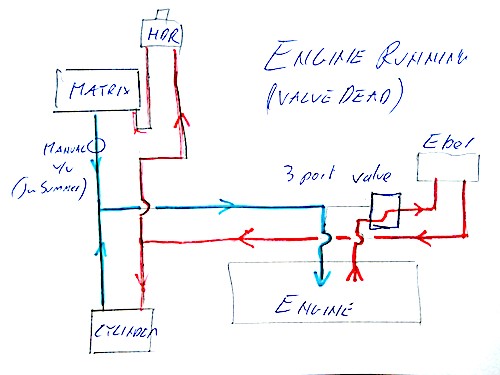 HDR
ENGINE RUNNING
(VALVE DEAD)
MATRIX
MANUAL
V/V
(IN SUMMER)
3 port valve
Eber
ENGINE
CYLINDER